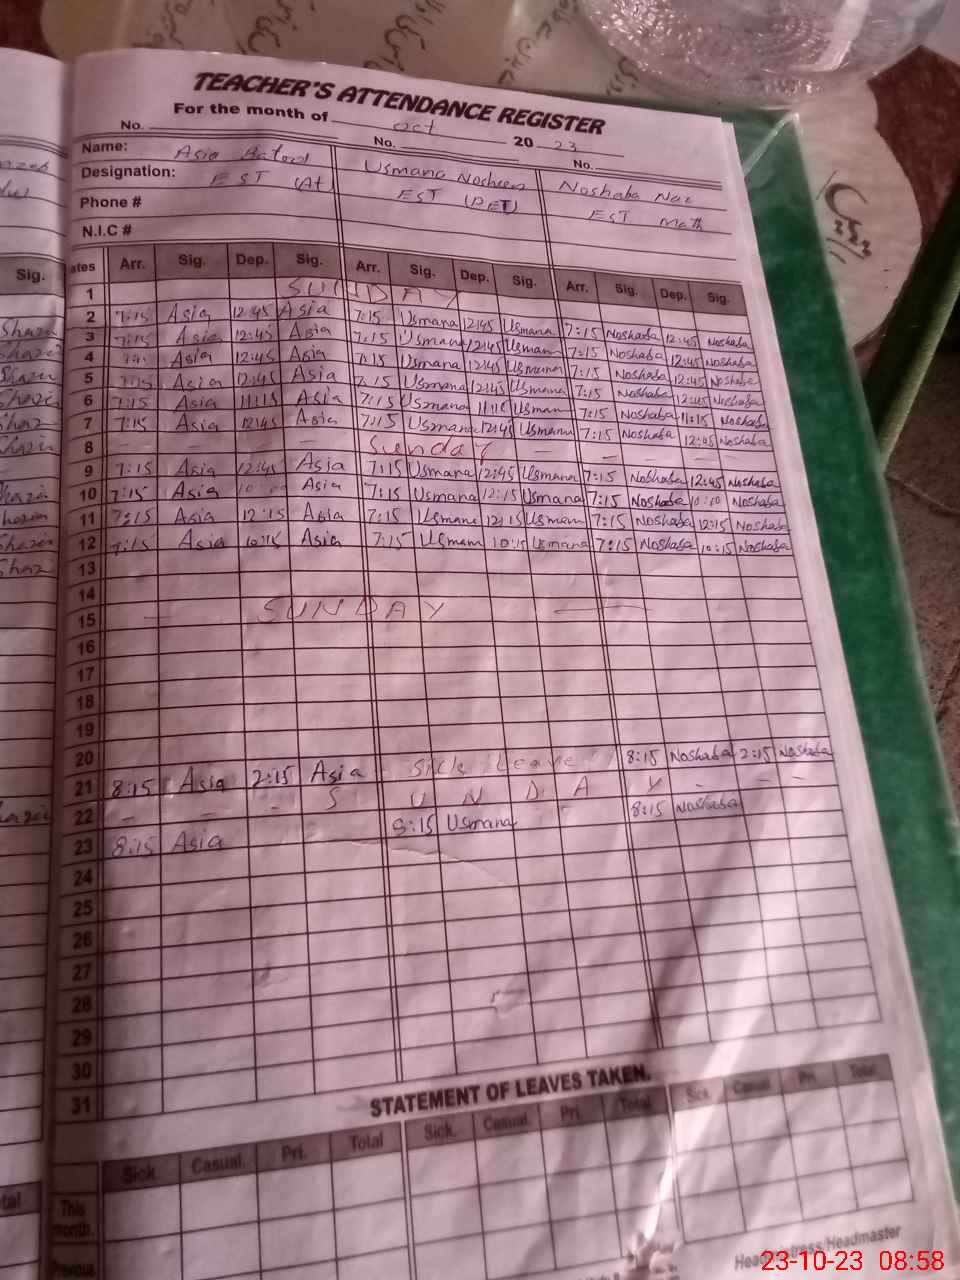 TEACHER'S ATTENDANCE REGISTER
For the month of Oct 20 23
No. No. No.
Name: Asia Usmana Nosheen Noshaba Naz
Designation: EST (At) EST (PET) EST Math
Phone #
N.I.C #
Sig. ates Arr. Sig. Dep. Sig. Arr. Sig. Dep. Sig. Arr. Sig. Dep. Sig.
1 SUNDAY
2 7:15 Asia 12:45 Asia 7:15 Usmana 12:45 Usmana 7:15 Noshaba 12:45 Noshaba
3 7:15 Asia 12:45 Asia 7:15 Usmana 12:45 Usmana 7:15 Noshaba 12:45 Noshaba
4 Asia 12:45 Asia 7:15 Usmana 12:45 Usmana 7:15 Noshaba 12:45 Noshaba
5 7:15 Asia 12:45 Asia 7:15 Usmana 12:45 Usmana 7:15 Noshaba 12:45 Noshaba
6 7:15 Asia 11:15 Asia 7:15 Usmana 11:15 Usman 7:15 Noshaba 11:15 Noshaba
7 7:15 Asia 12:45 Asia 7:15 Usmana 12:45 Usmana 7:15 Noshaba 12:45 Noshaba
8 — — — — Sunday — — — —
9 7:15 Asia 12:45 Asia 7:15 Usmana 12:45 Usmana 7:15 Noshaba 12:45 Noshaba
10 7:15 Asia Asia 7:15 Usmana 12:15 Usmana 7:15 Noshaba 10:10 Noshaba
11 7:15 Asia 12:15 Asia 7:15 Usmana 12:15 Usmana 7:15 Noshaba 12:15 Noshaba
12 7:15 Asia 10:15 Asia 7:15 Usmana 10:15 Usmana 7:15 Noshaba 10:15 Noshaba
13
14
15 — SUNDAY —
16
17
18
19
20
21 8:15 Asia 2:15 Asia Sick Leave 8:15 Noshaba 2:15 Noshaba
22 — — — S U N D A Y — — —
23 8:15 Asia 8:15 Usmana 8:15 Noshaba
24
25
26
27
28
29
30
31
STATEMENT OF LEAVES TAKEN.
Sick. Casual. Pri. Total Sick. Casual. Pri. Total Sick. Casual. Pri. Total
This month.
Headmistress/Headmaster
23-10-23 08:58